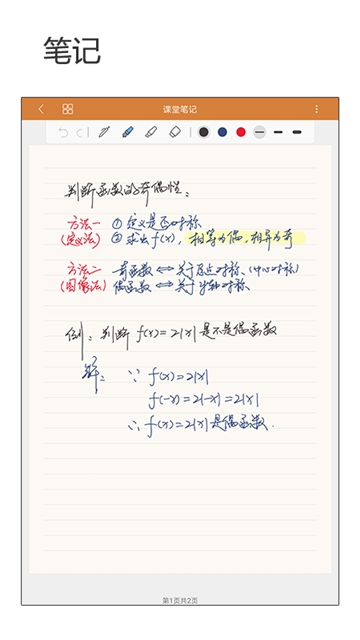 笔记
课堂笔记
判断函数的奇偶性:
方法一 ① 定义是否对称
(定义法) ② 求出f(x),相等为偶,相异为奇
方法二 奇函数 ⇔ 关于原点对称.(中心对称)
(图像法) 偶函数 ⇔ 关于y轴对称.
例:判断 f(x)=2|x| 是不是偶函数
解: ∵ f(x)=2|x|
f(-x)=2|-x|=2|x|
∴ f(x)=2|x| 是偶函数.
第1页共2页